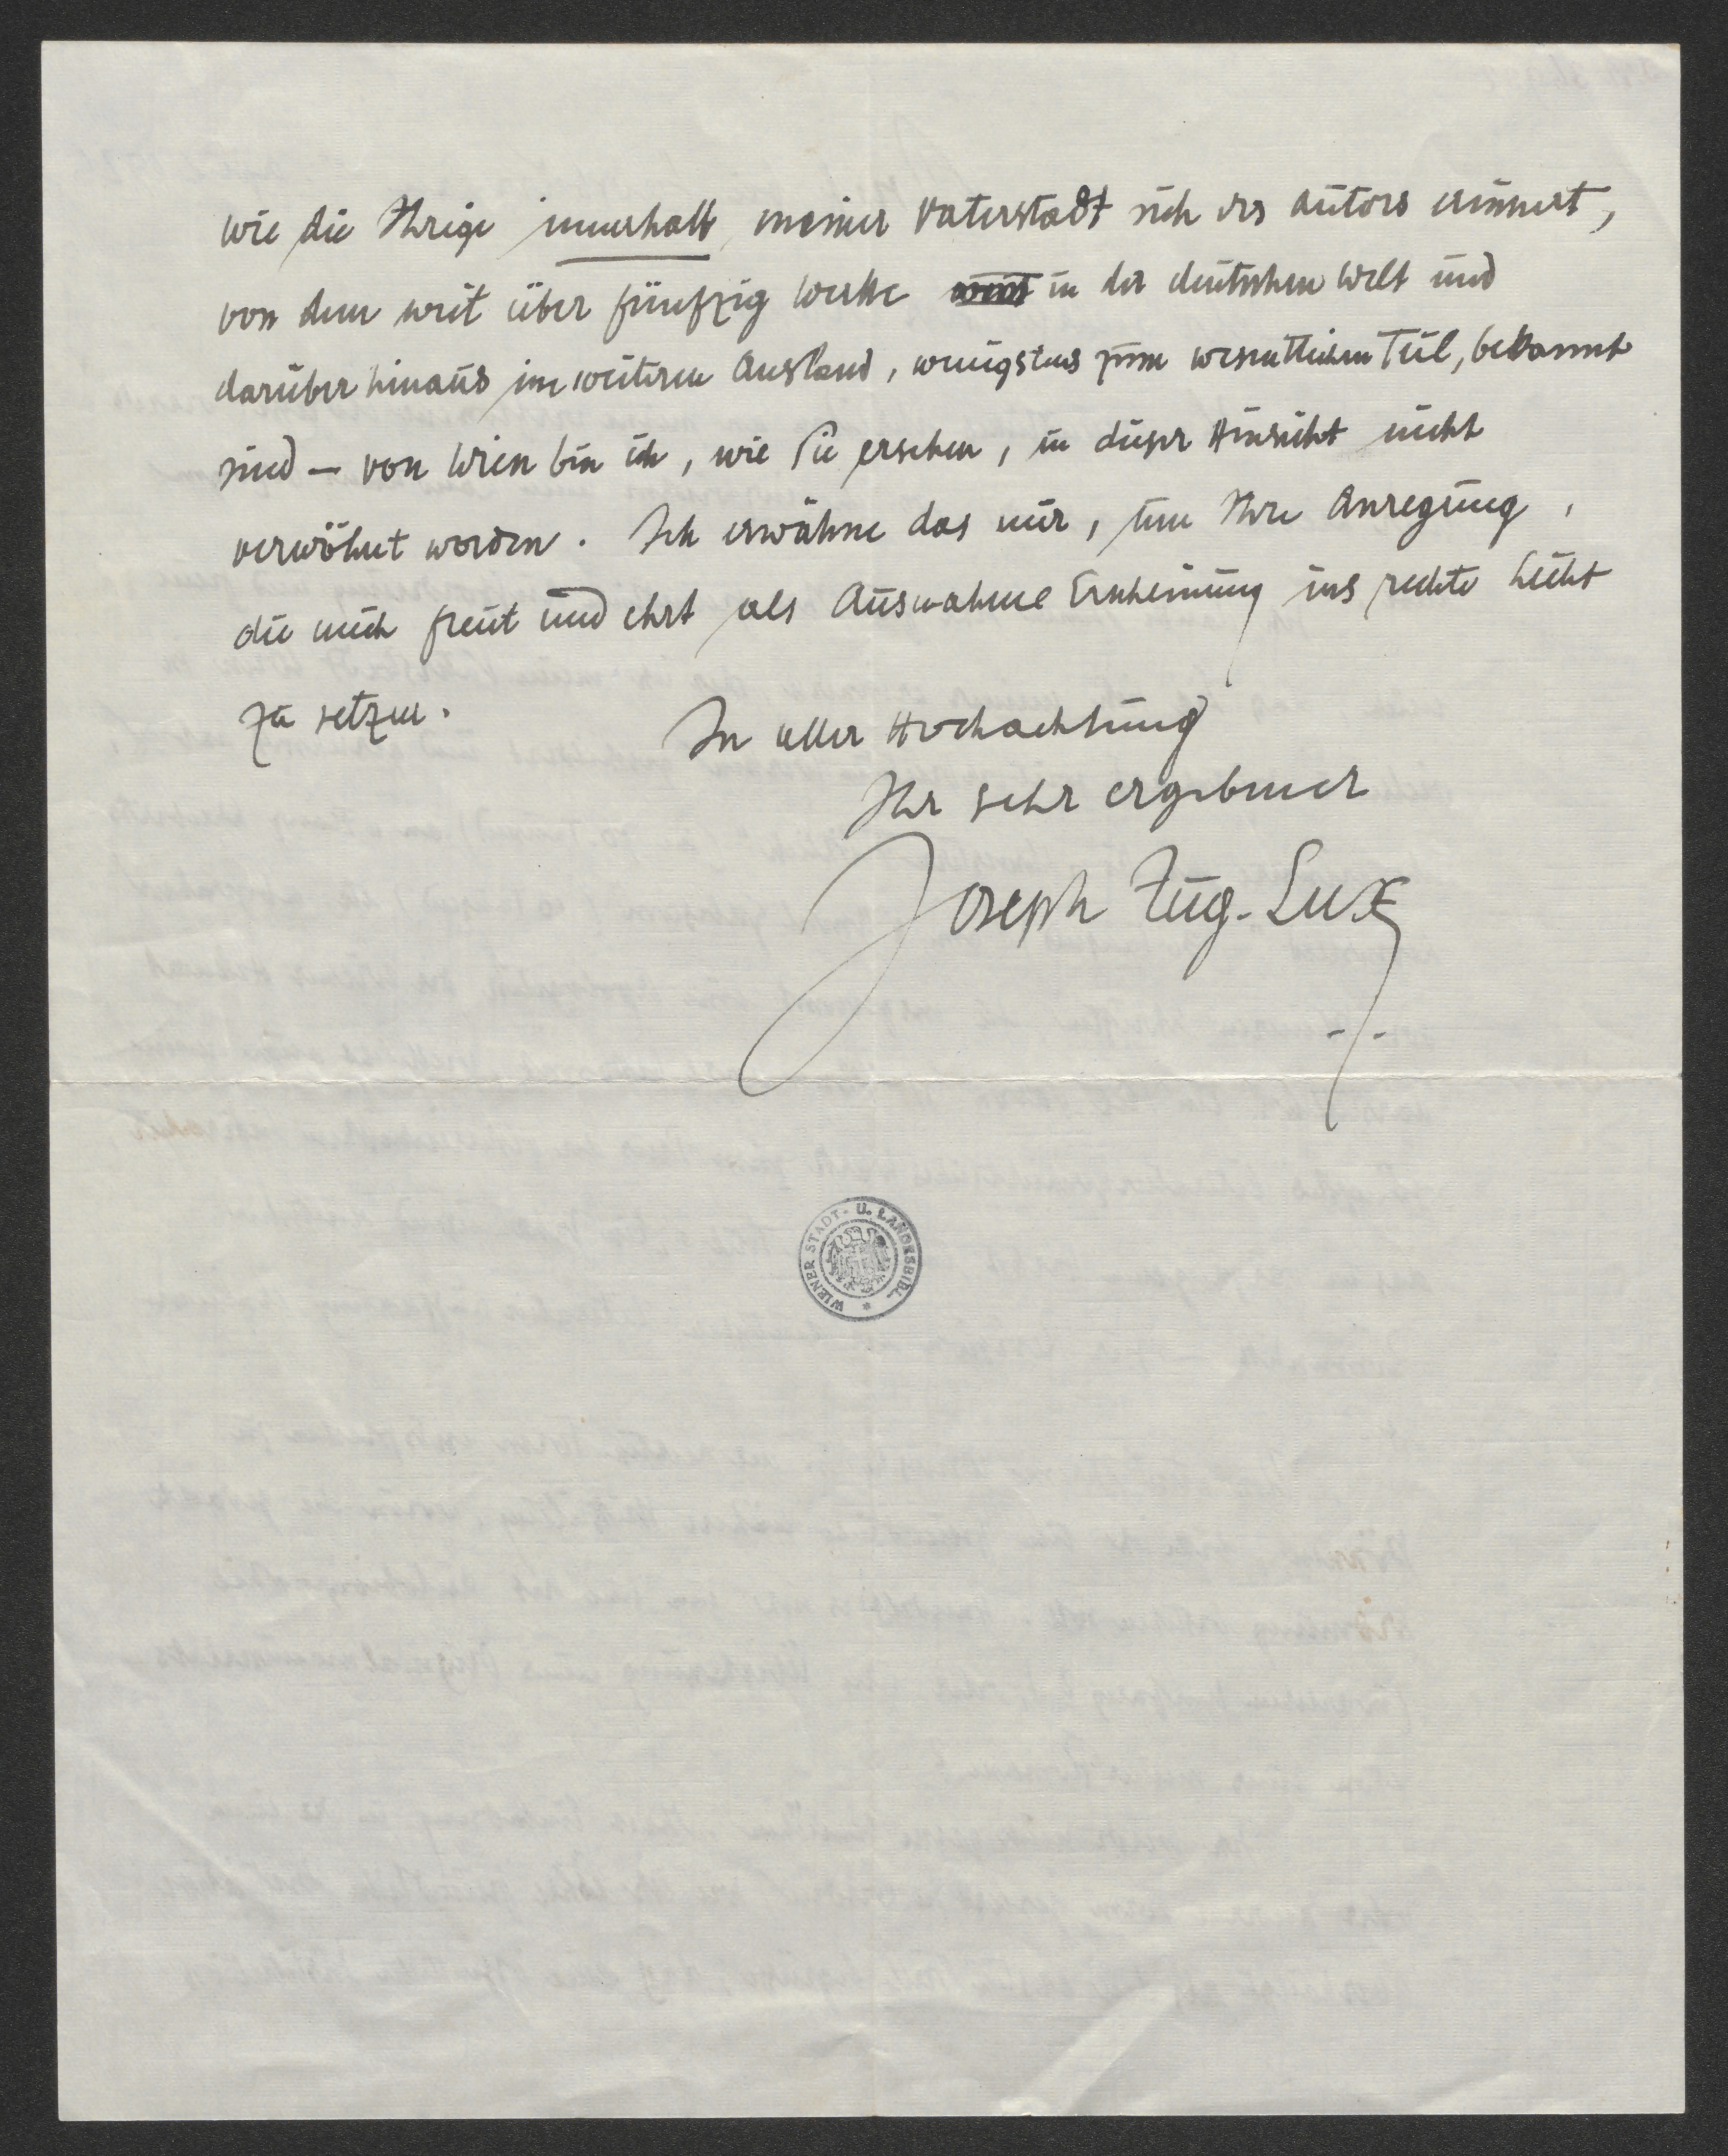 wie die Ihrige innerhalb meiner Vaterstadt sich des Autors erinnert,
von dem weit über fünfzig Werke in der deutschen Welt und
darüber hinaus im weiteren Ausland, wenigstens zum wesentlichen Teil, bekannt
sind – von Wien bin ich, wie Sie ersehen, in dieser Hinsicht nicht
verwöhnt worden. Ich erwähne das nur, um Ihre Anregung,
die mich freut und ehrt als Ausnahme Erscheinung ins rechte Licht
zu setzen.
In aller Hochachtung
Ihr sehr ergebener
Joseph Aug. Lux
WIENER STADT- U. LANDESBIBL. *